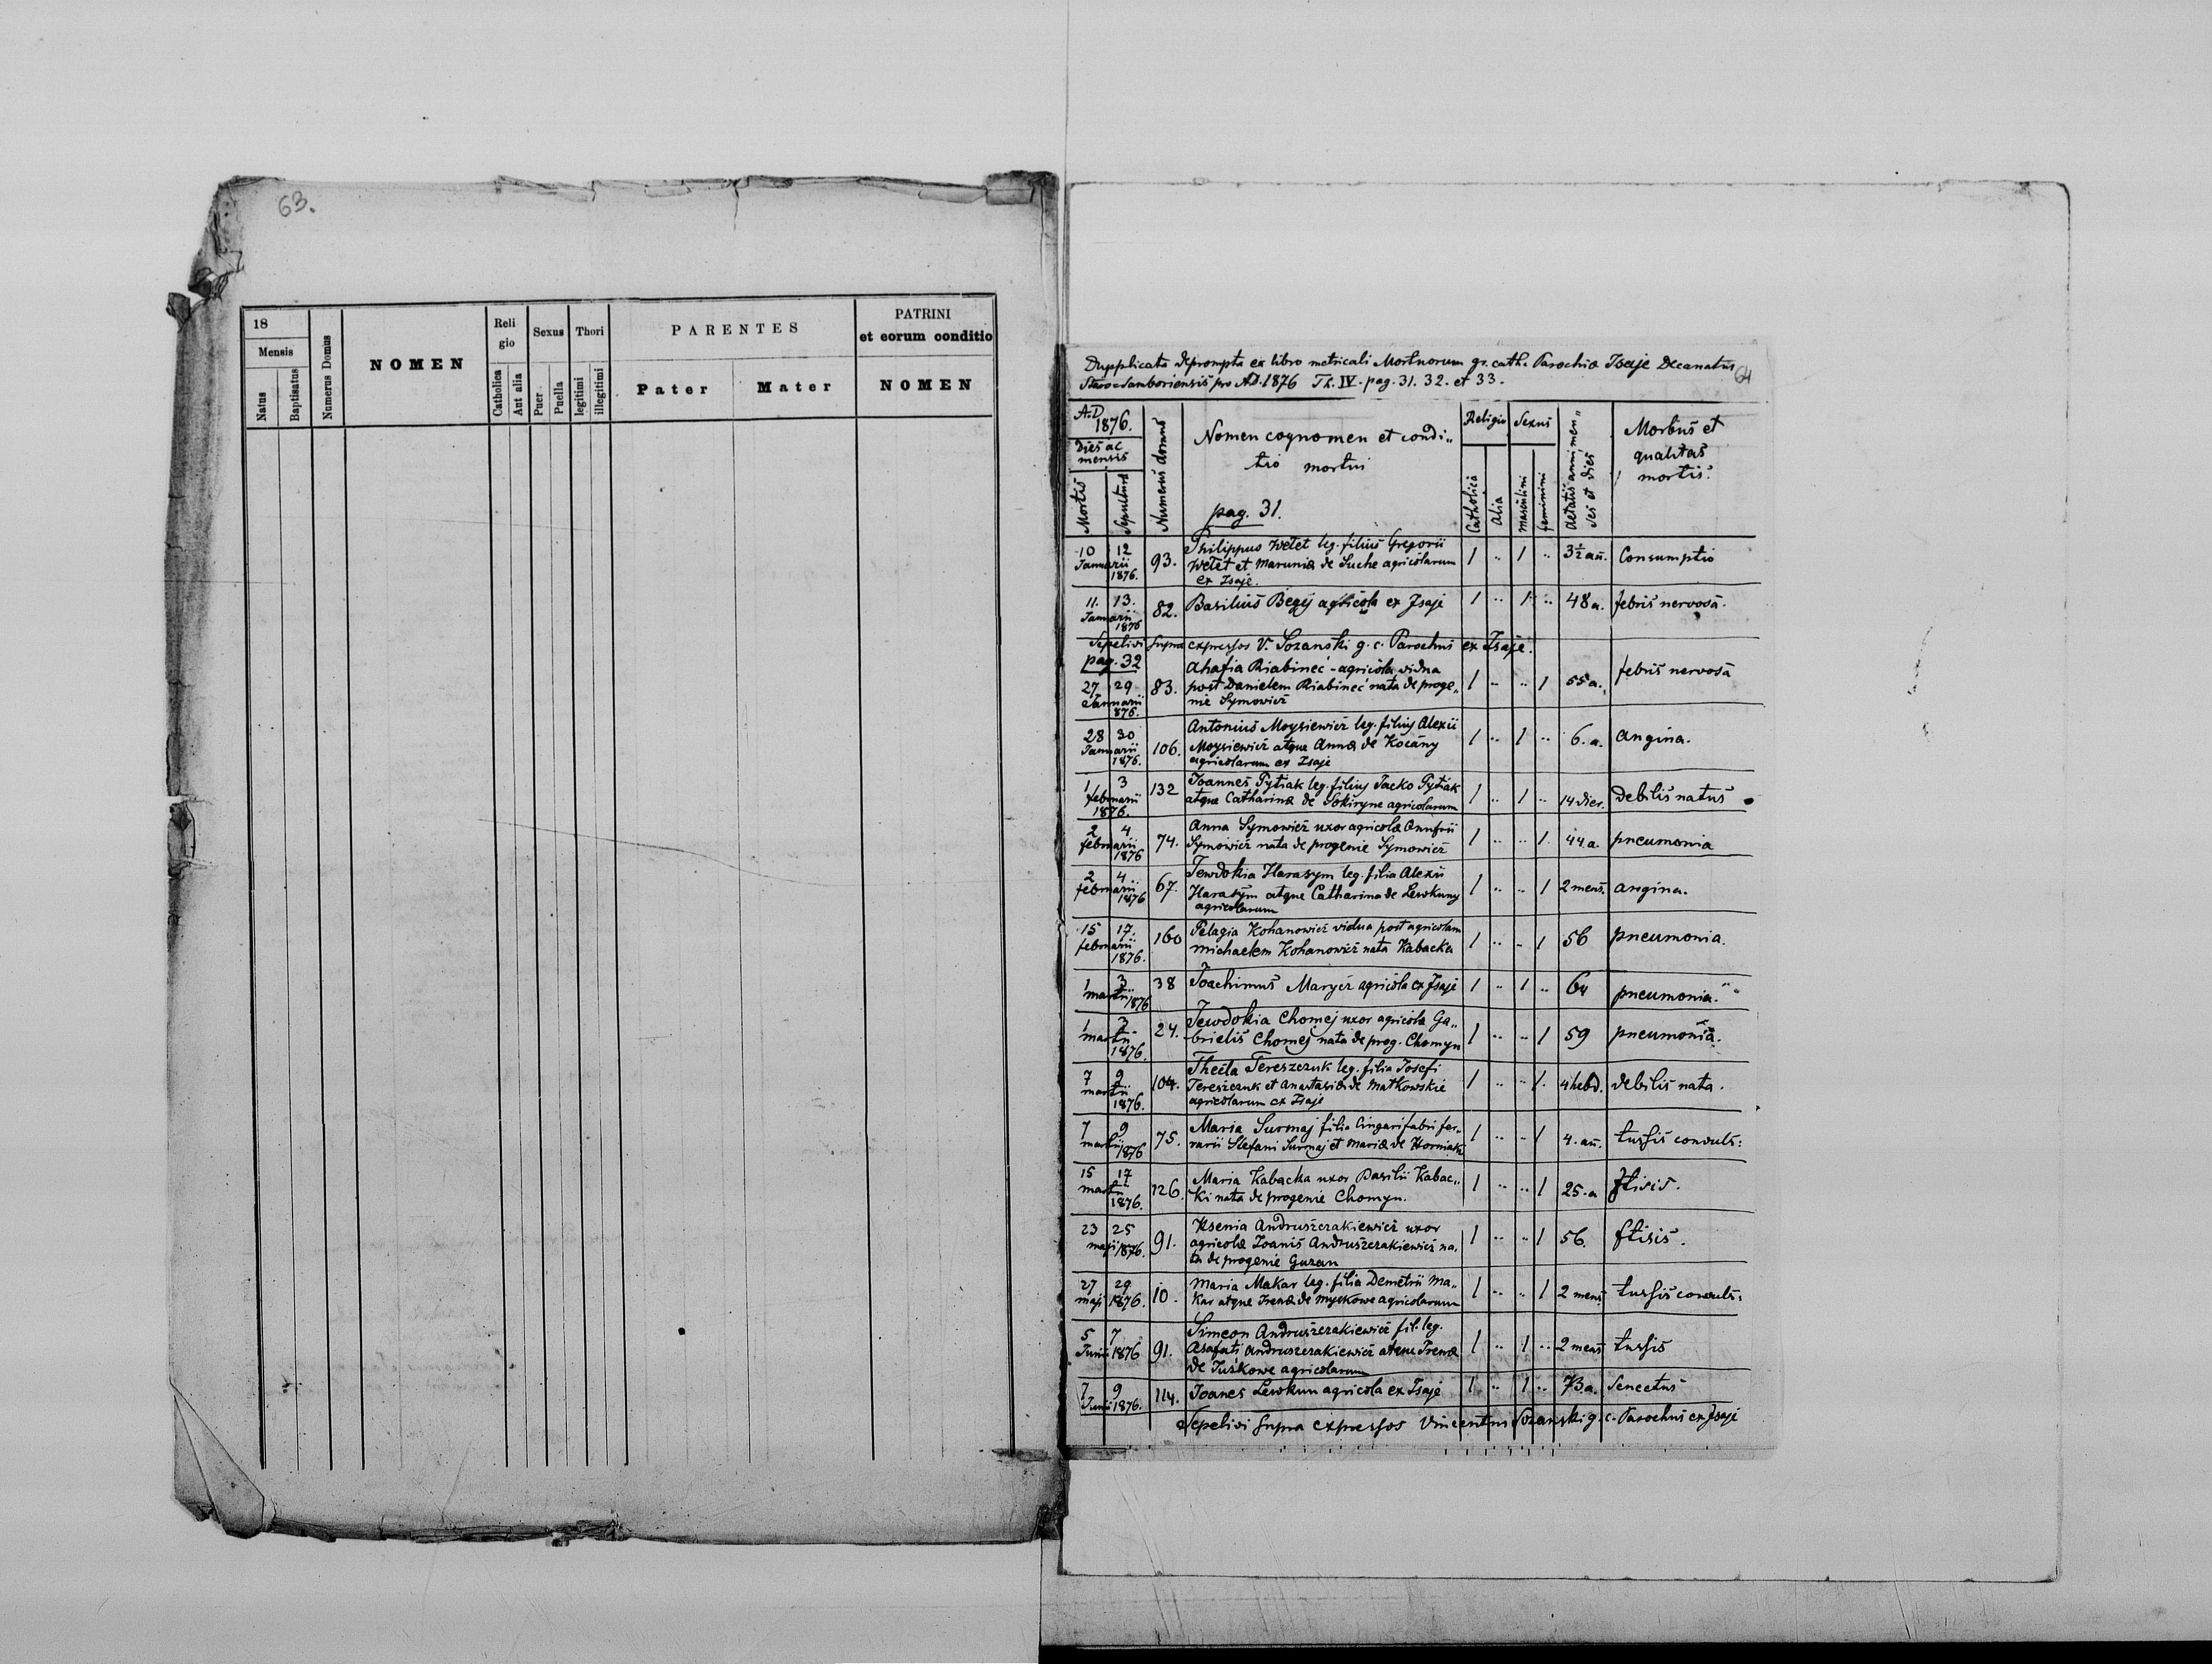 63.
18
Mensis
Natus
Baptisatus
Numerus Domus
NOMEN
Reli
gio
Catholica
Aut alia
Sexus
Puer
Puella
Thori
legitimi
illegitimi
PARENTES
Pater
Mater
PATRINI
et eorum conditio
NOMEN
Dupplicata deprompta ex libro metricali Mortuorum gr. cath. Parochiæ Isaje Decanatus
Staro-Samboriensis pro A.D. 1876 Th. IV. pag. 31. 32. et 33.
64
A.D. 1876.
dies ac
mensis
Mortis
Sepulturæ
Numerus domus
Nomen cognomen et condi„
tio mortui
pag. 31.
Religio
Catholica
Alia
Sexus
masculini
feminini
Aetatis anni, men„
ses et dies
Morbus et
qualitas
mortis.
10 12 93. Philippus Wetet leg. filius Gregorii 1 .. 1 .. 3½ añ. Consumptio
Januarii Wetet et Maruniæ de Suche agricolarum
1876. ex Isaje.
11. 13. 82. Basilius Begej agricola ex Isaje 1 .. 1 .. 48 a. febris nervosa.
Januarii
1876
Sepelivi supra expressos V. Sozanski g. c. Parochus ex Isaje.
pag. 32 Ahafia Riabineć - agricola vidua febris nervosa
27 29 83. post Danielem Riabineć nata de proge„ 1 .. .. 1 55 a.
Januarii nie Symowicz
876.
Antonius Moysiewicz leg. filius Alexii
28 30 106. Moysiewicz atque Annæ de Kocány 1 .. 1 .. 6. a. angina.
Januarii agricolarum ex Isaje
1876.
1 3 132 Joannes Pytiak leg. filius Jacko Pytiak 1 .. 1 .. 14 dier. debilis natus
februarii atque Catharinæ de Sokiryne agricolarum
1876.
2 4 74. Anna Symowicz uxor agricolæ Onufrii 1 .. .. 1. 44 a. pneumonia
februarii Symowicz nata de progenie Symowicz
1876
2 4 67. Jewdokia Harasym leg. filia Alexii 1 .. .. 1 2 mens. angina.
februarii Harasym atque Catharinæ de Lewkuny
1876 agricolarum
15 17. 160 Pelagia Kohanowicz vidua post agricolam 1 .. .. 1 56 pneumonia.
februarii Michaelem Kohanowicz nata Kabacka
1876.
1 3 38 Joachimus Marycz agricola ex Isaje 1 .. 1 .. 64 pneumonia.
martii 1876
1 3 24. Jewdokia Chomej uxor agricolæ Ga„ 1 .. .. 1 59 pneumonia.
martii brielis Chomej nata de prog. Chomyn
1876.
7 9 104. Thecla Tereszczuk leg. filia Josefi 1 .. .. 1. 4 hebd. debilis nata.
martii Tereszczuk et Anastasiæ de Matkowskie
1876. agricolarum ex Isaje
7 9 75. Maria Surmaj filia Cingari fabri fer„ 1 .. .. 1 4. añ. tussis convuls:
martii 1876 rarii Stefani Surmaj et Mariæ de Horniak
15 17 126. Maria Kabacka uxor Basilii Kabac„ 1 .. .. 1 25. a ftisis.
martii ki nata de progenie Chomyn.
1876.
23 25 91. Ksenia Andruszczakiewicz uxor 1 .. .. 1 56. ftisis.
maji 1876. agricolæ Joanis Andruszczakiewicz na„
ta de progenie Guzan
27 29 10. Maria Makar leg. filia Demetrii Ma„ 1 .. .. 1 2 mens. tussis convuls:
maji 1876. kar atque Irenæ de Myckowe agricolarum
5 7 91. Simeon Andruszczakiewicz fil. leg. 1 .. 1 .. 2 mens tussis
Junii 1876 Asafati Andruszczakiewicz atque Irenæ
de Juśkowe agricolarum
7 9 114. Joanes Lewkun agricola ex Isaje 1 .. 1 .. 73 a. Senectus
Junii 1876.
Sepelivi supra expressos Vincentius Sozanski g. c. Parochus ex Isaje